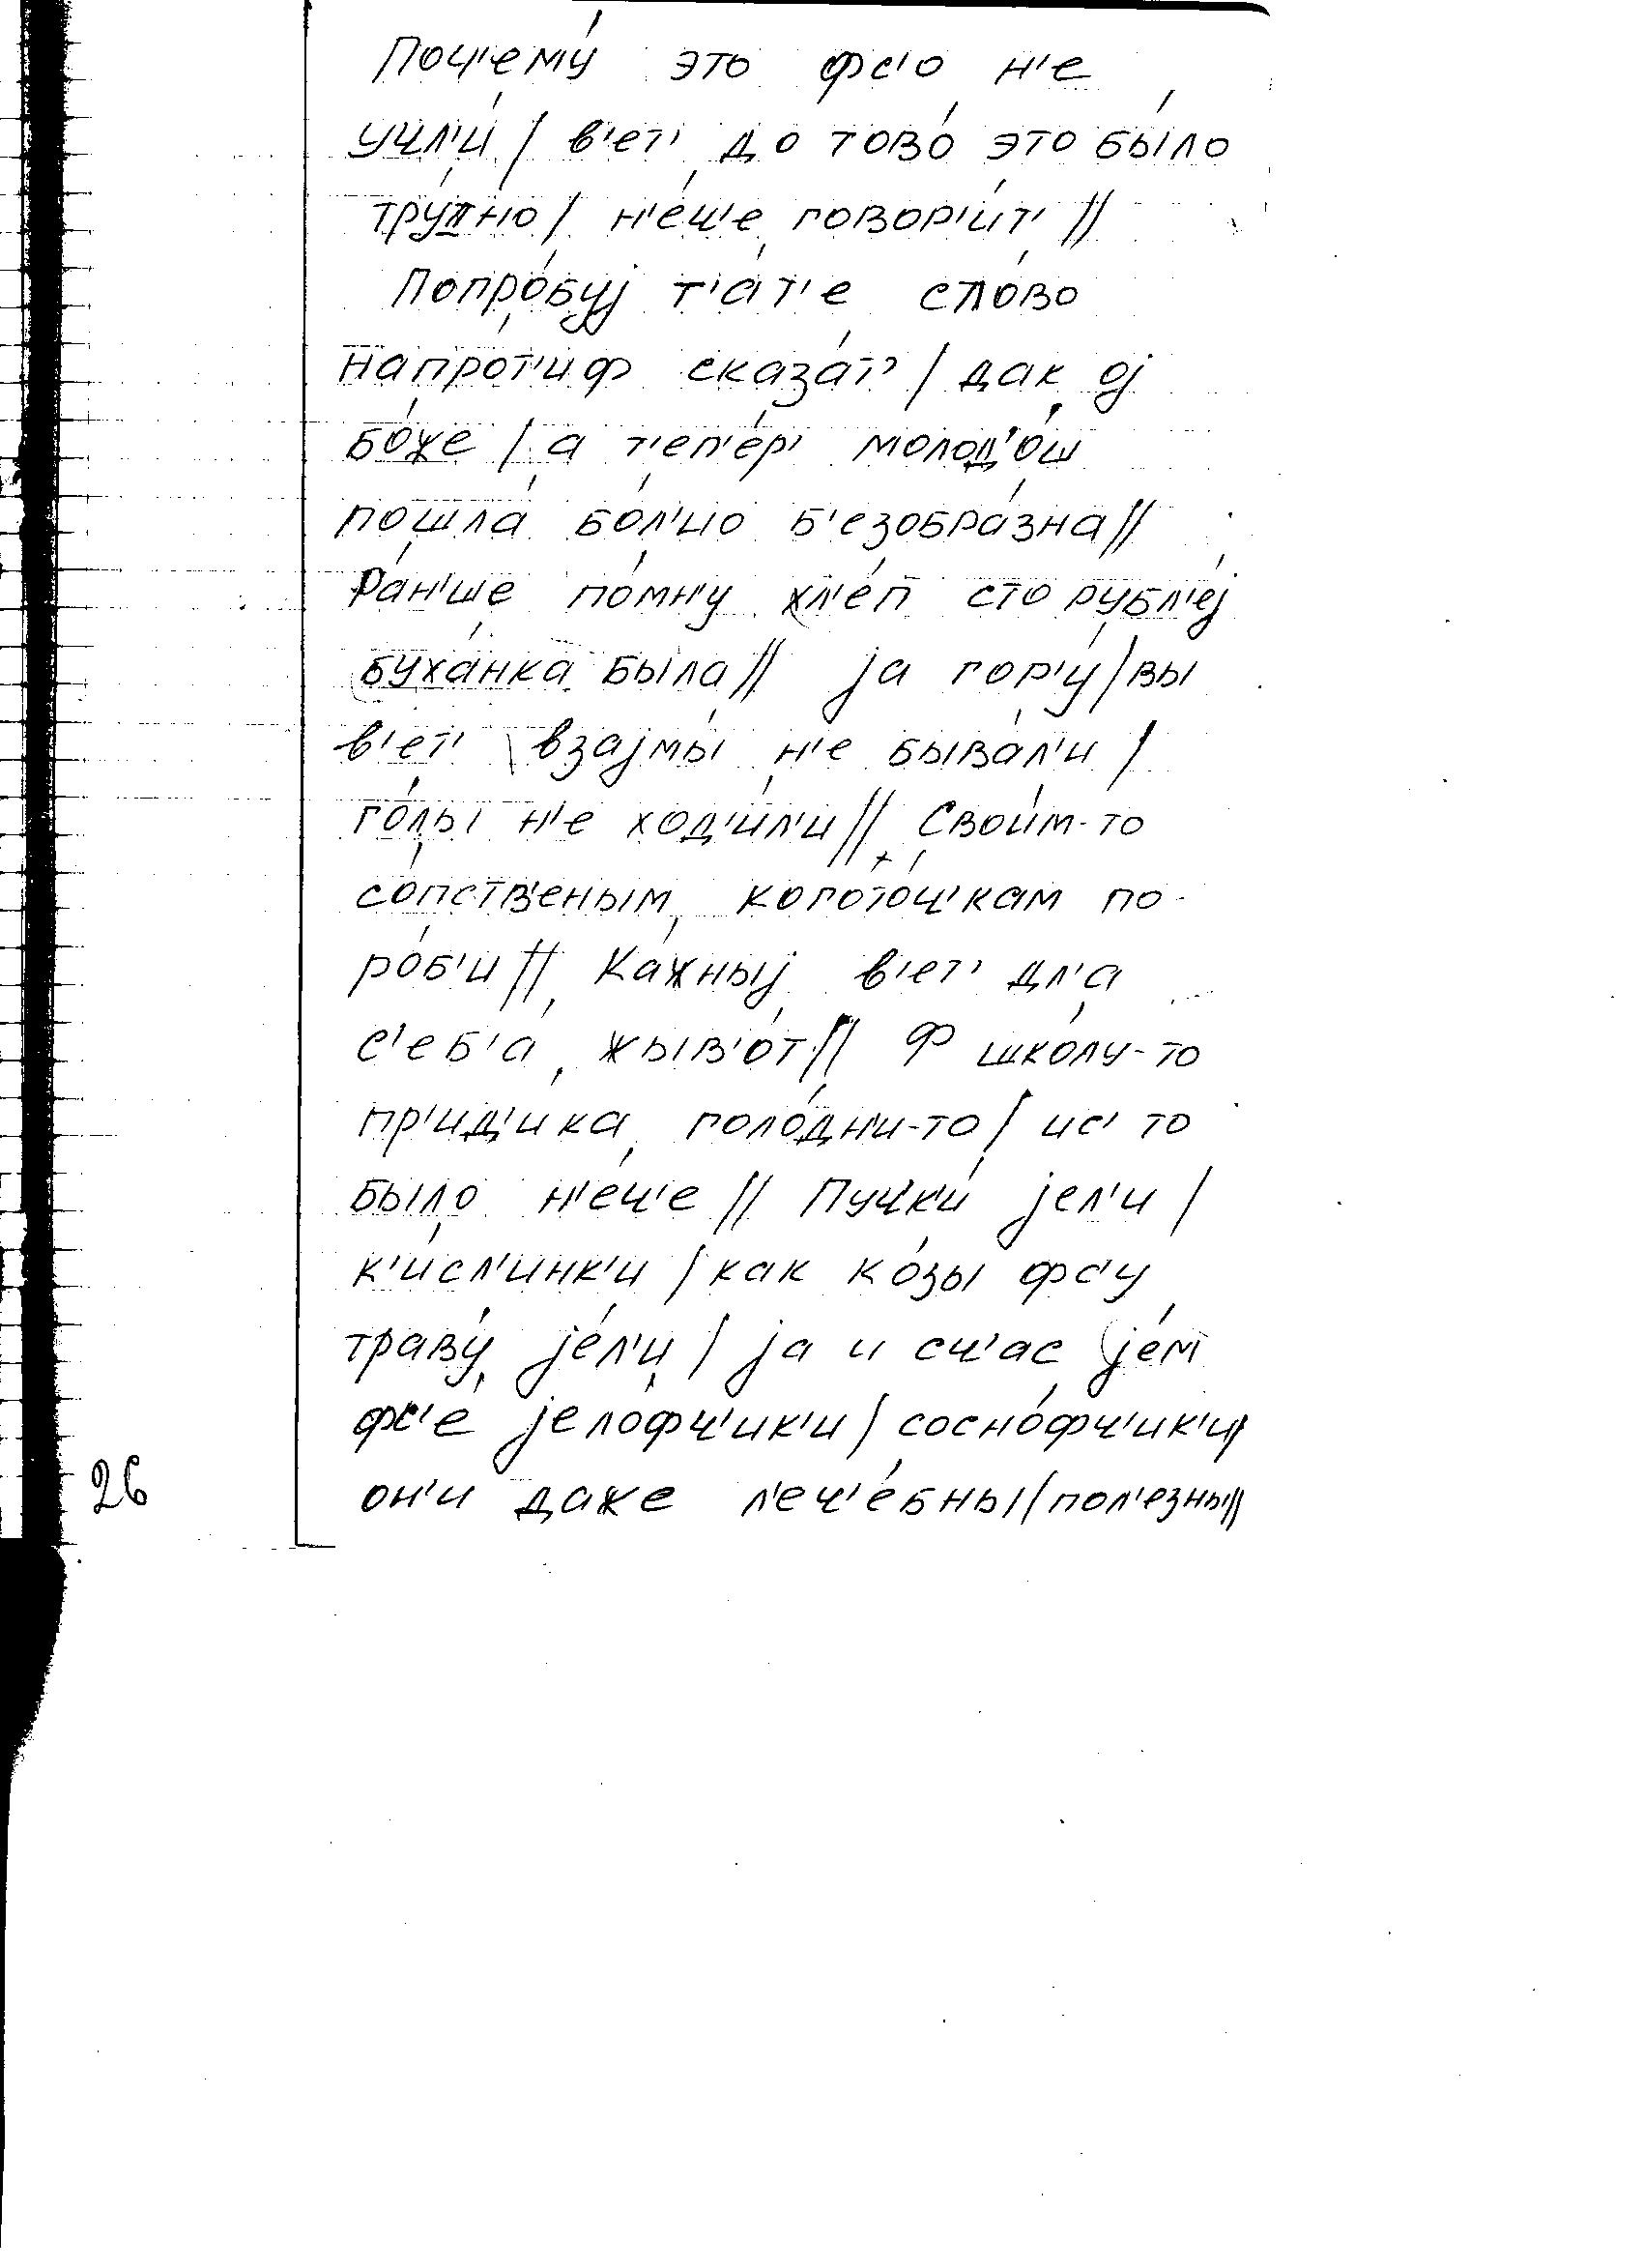 Поч'ему́ э́то фс'о н'е
учл'и́ / в'ет' до тово́ э́то бы́ло
тру́пно / н'е́ч'е говор'и́т' //
Попро́буј т'а́т'е сло́во
напро́т'иф сказа́т' / дак ој
бо́же / а т'еп'е́р' молод'о́ш
пошла́ бо́л'но б'езобра́зна //
Ра́н'ше по́мн'у хл'е́п сто рубл'е́ј
буха́нка была́ // ја гор'у́ / вы
в'ет' взајмы́ н'е быва́л'и /
го́лы н'е ход'и́л'и // Свои́м-то
со́пств'еным когото́ч'кам по-
ро́б'и // Ка́жныј в'ет' дл'а
с'еб'а́ жыв'о́т // Ф шко́лу-то
пр'ид'и́ка голо́дн'и-то / ис' то
бы́ло н'е́ч'е // Пучк'и́ јел'и /
к'и́сл'инк'и / как ко́зы фс'у
траву́ је́л'и / ја и сч'ас је́м
фс'е́ јело́фч'ик'и / сосно́фч'ик'и /
он'и даже л'еч'е́бны / пол'е́зны //
26